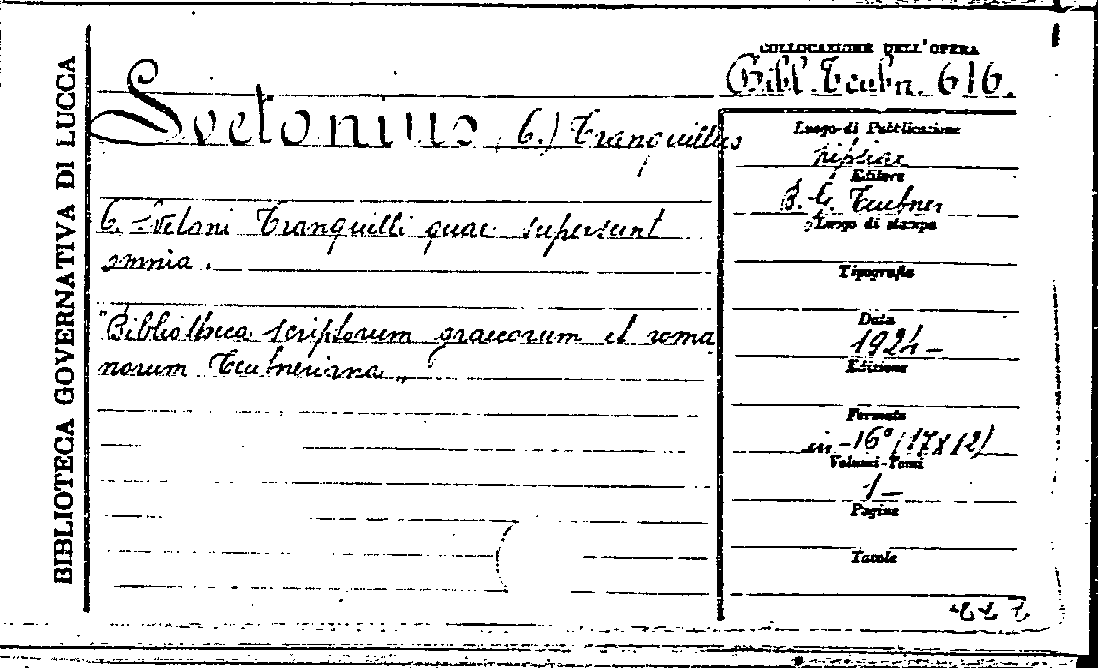 BIBLIOTECA GOVERNATIVA DI LUCCA
COLLOCAZIONE DELL'OPERA
Bibl. Teubn. 616.
Svetonius (C.) Tranquillus
C. Svetoni Tranquilli quae supersunt
omnia.
"Bibliotheca scriptorum graecorum et roma
norum Teubneriana„
Luogo di Pubblicazione
Lipsiae
Editore
B. G. Teubner
Luogo di stampa
Tipografia
Data
1924-
Edizione
Formato
in-16° (17x12)
Volumi-Tomi
1-
Pagine
Tavole